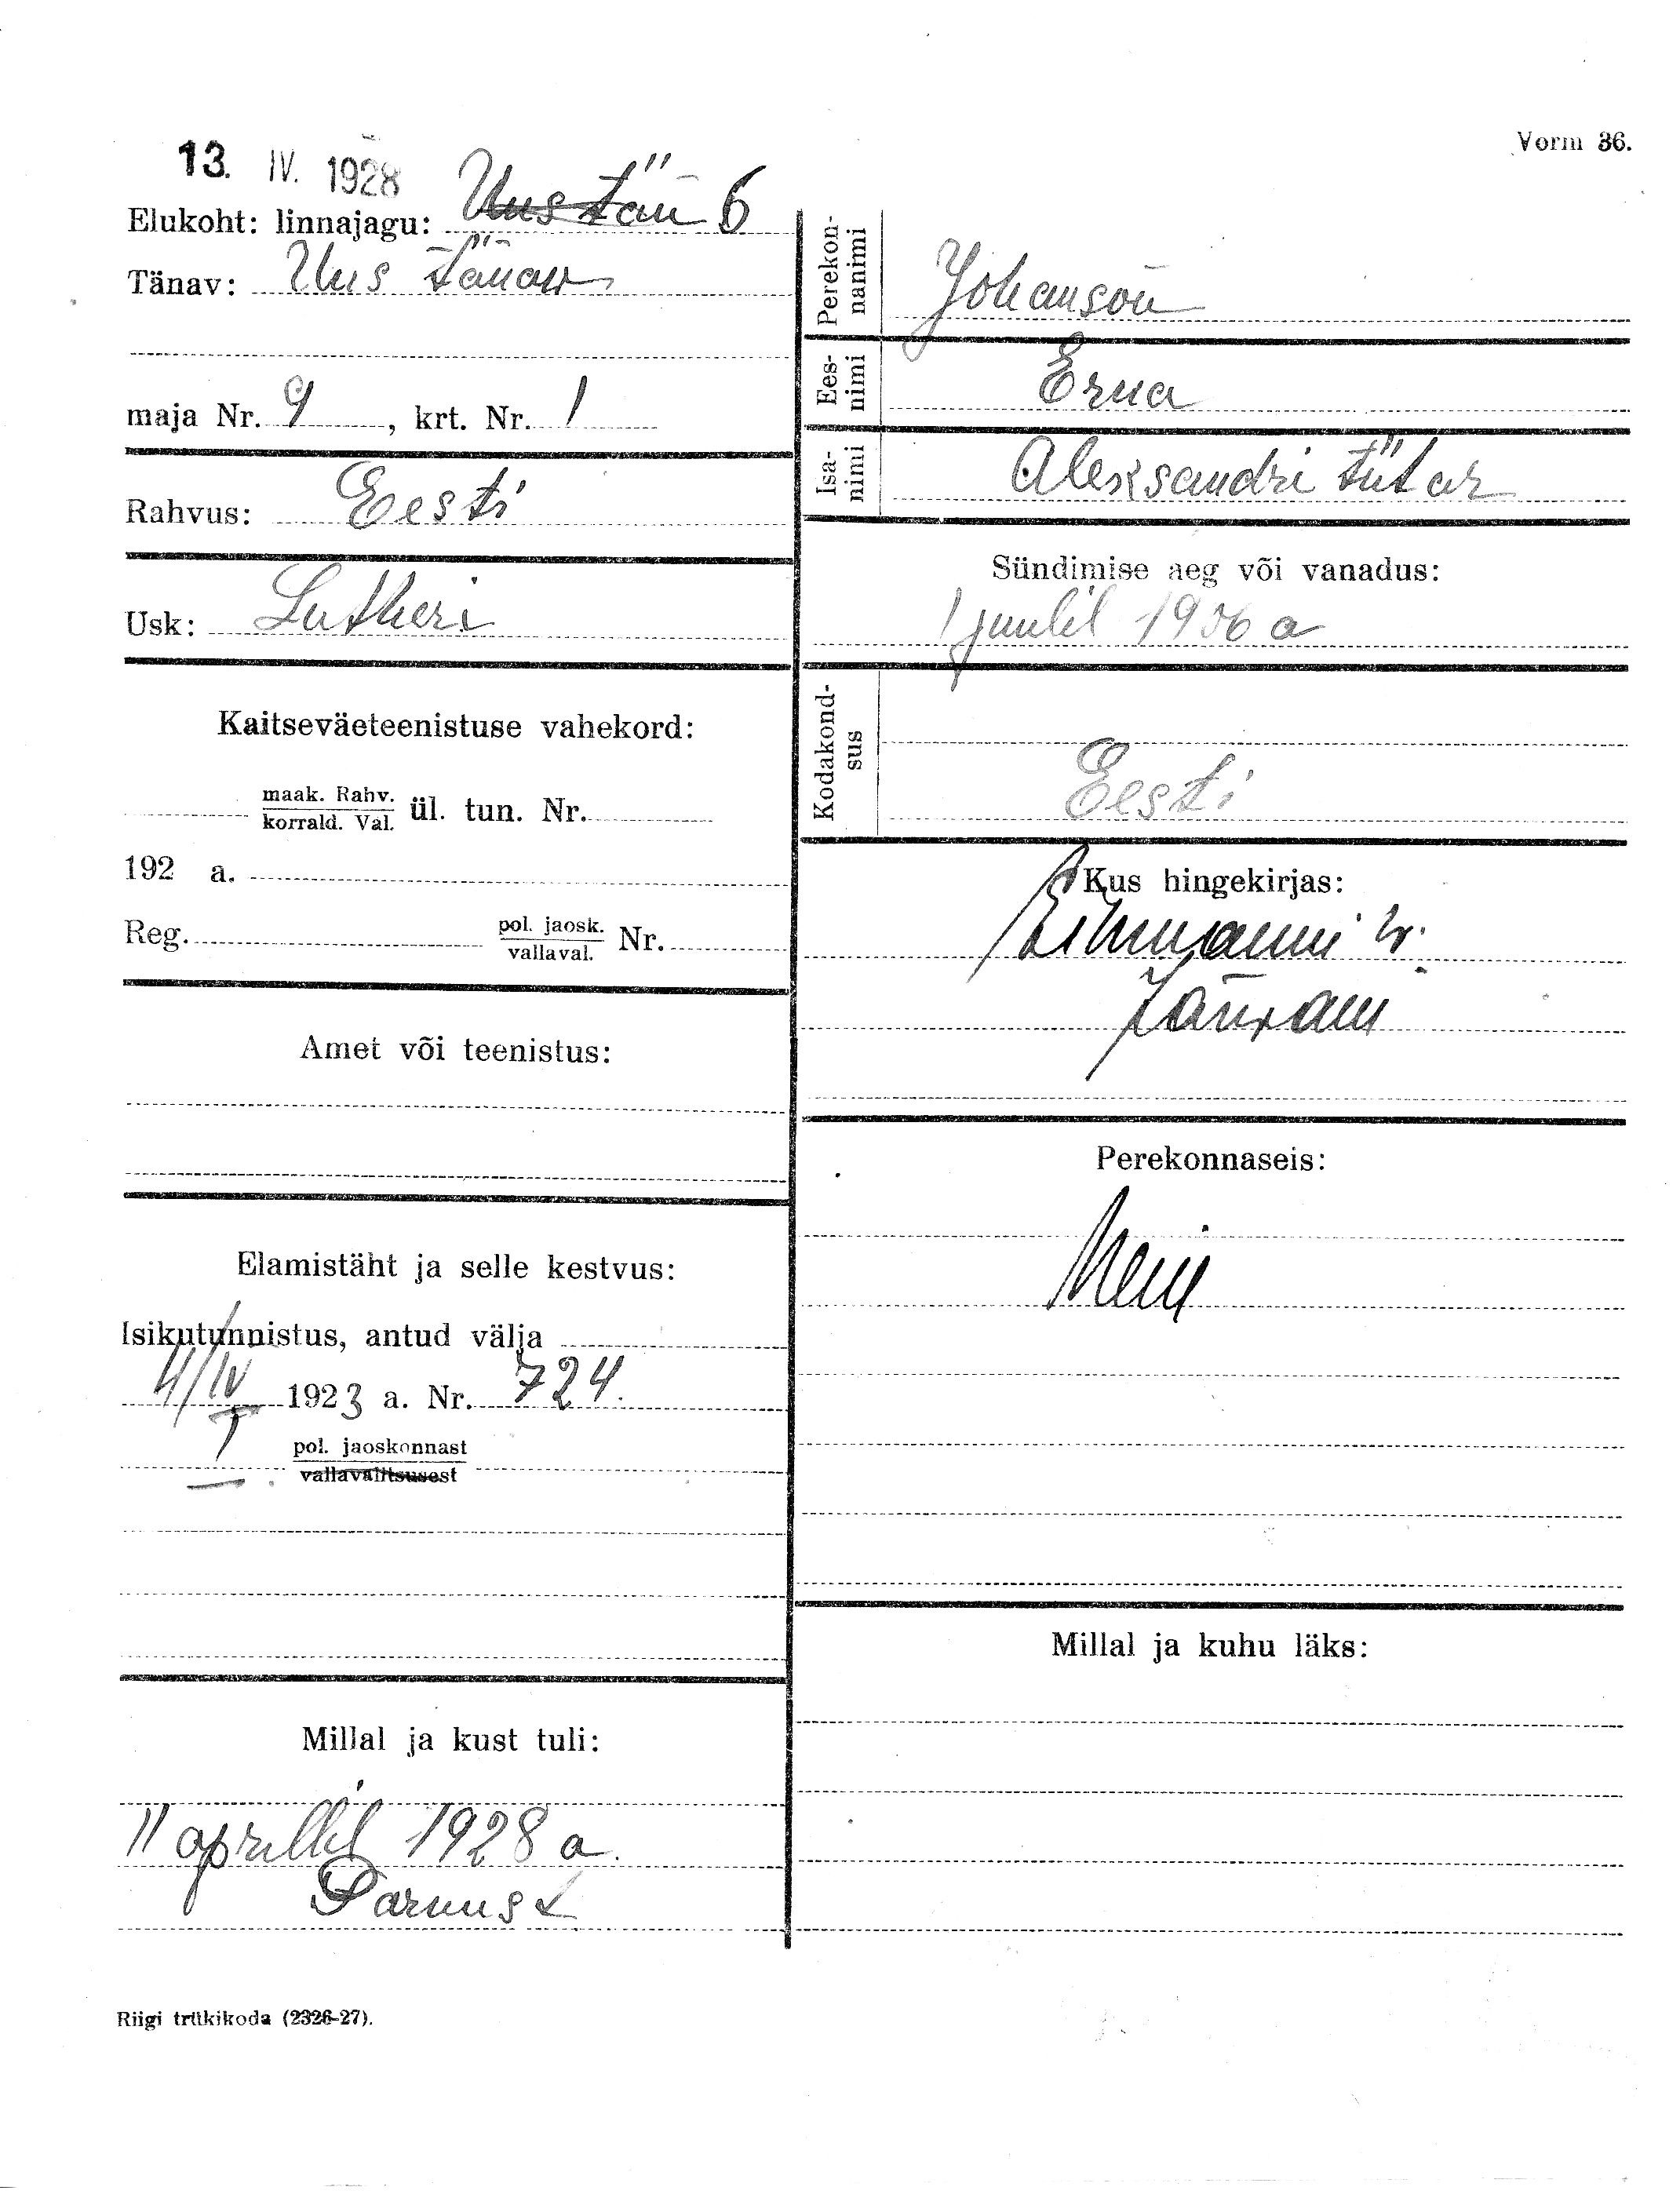 Vorm 36.
13. IV. 1928
Elukoht: linnajagu: Uus tän 6
Tänav: Uus tänaw
maja Nr. 9, krt. Nr. 1
Rahvus: Eesti
Usk: Lutheri
Kaitseväeteenistuse vahekord:
maak. Rahv.
korrald. Val. ül. tun. Nr.
192 a.
Reg. pol. jaosk.
vallaval. Nr.
Amet või teenistus:
Elamistäht ja selle kestvus:
Isikutunnistus, antud välja
4/IV 1923 a. Nr. 724.
I pol. jaoskonnast
vallavalitsusest
Millal ja kust tuli:
11 aprillil 1928 a.
Pärnust
Perekon-
nanimi Johanson
Ees-
nimi Erna
Isa-
nimi Aleksandri tütar
Sündimise aeg või vanadus:
1 juulil 1906 a
Kodakond-
sus
Eesti
Kus hingekirjas:
w.
Perekonnaseis:
Neiu
Millal ja kuhu läks:
Riigi trükikoda (2326-27).